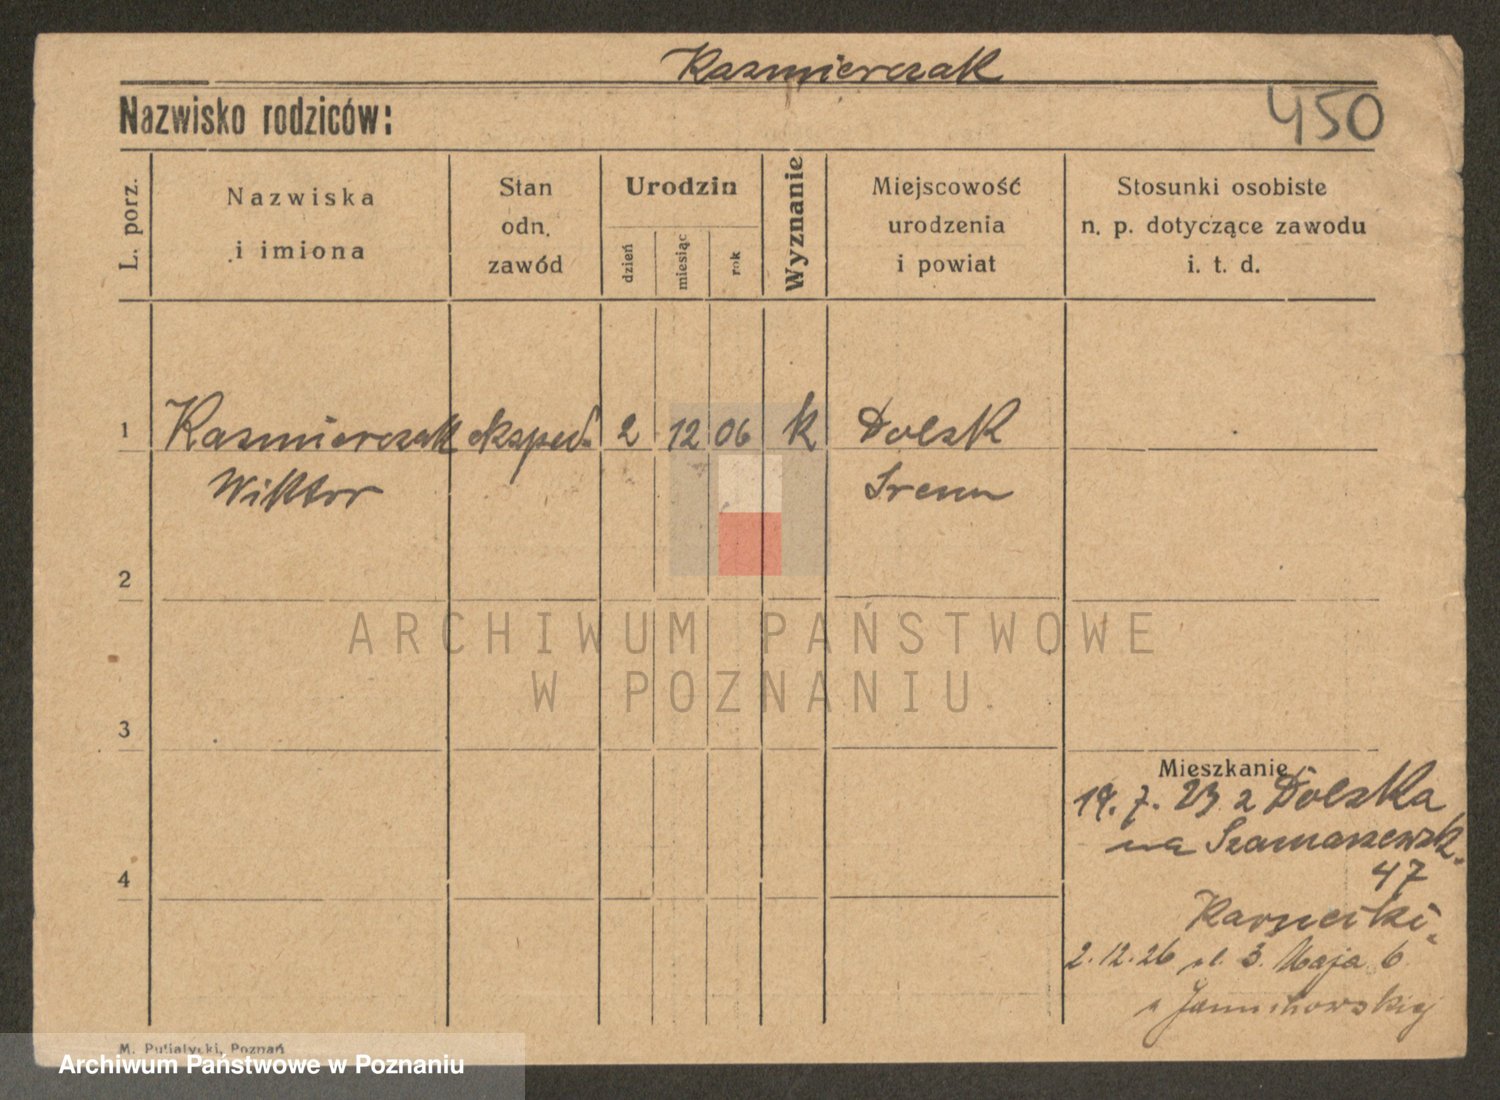 Kazmierczak
Nazwisko rodziców:
450
L. porz.
Nazwiska
i imiona
Stan
odn.
zawód
Urodzin
dzień
miesiąc
rok
Wyznanie
Miejscowość
urodzenia
i powiat
Stosunki osobiste
n. p. dotyczące zawodu
i. t. d.
1
Kazmierczak eksped. 2 12 06 k Dolsk
Wiktor Srem
2
ARCHIWUM PAŃSTWOWE
W POZNANIU
3
Mieszkanie
19. 7. 23 z Dolska
na Szamarzewsk.
47
4
2.12.26 ul. 3. Maja 6
M. Putiatycki, Poznań
Archiwum Państwowe w Poznaniu